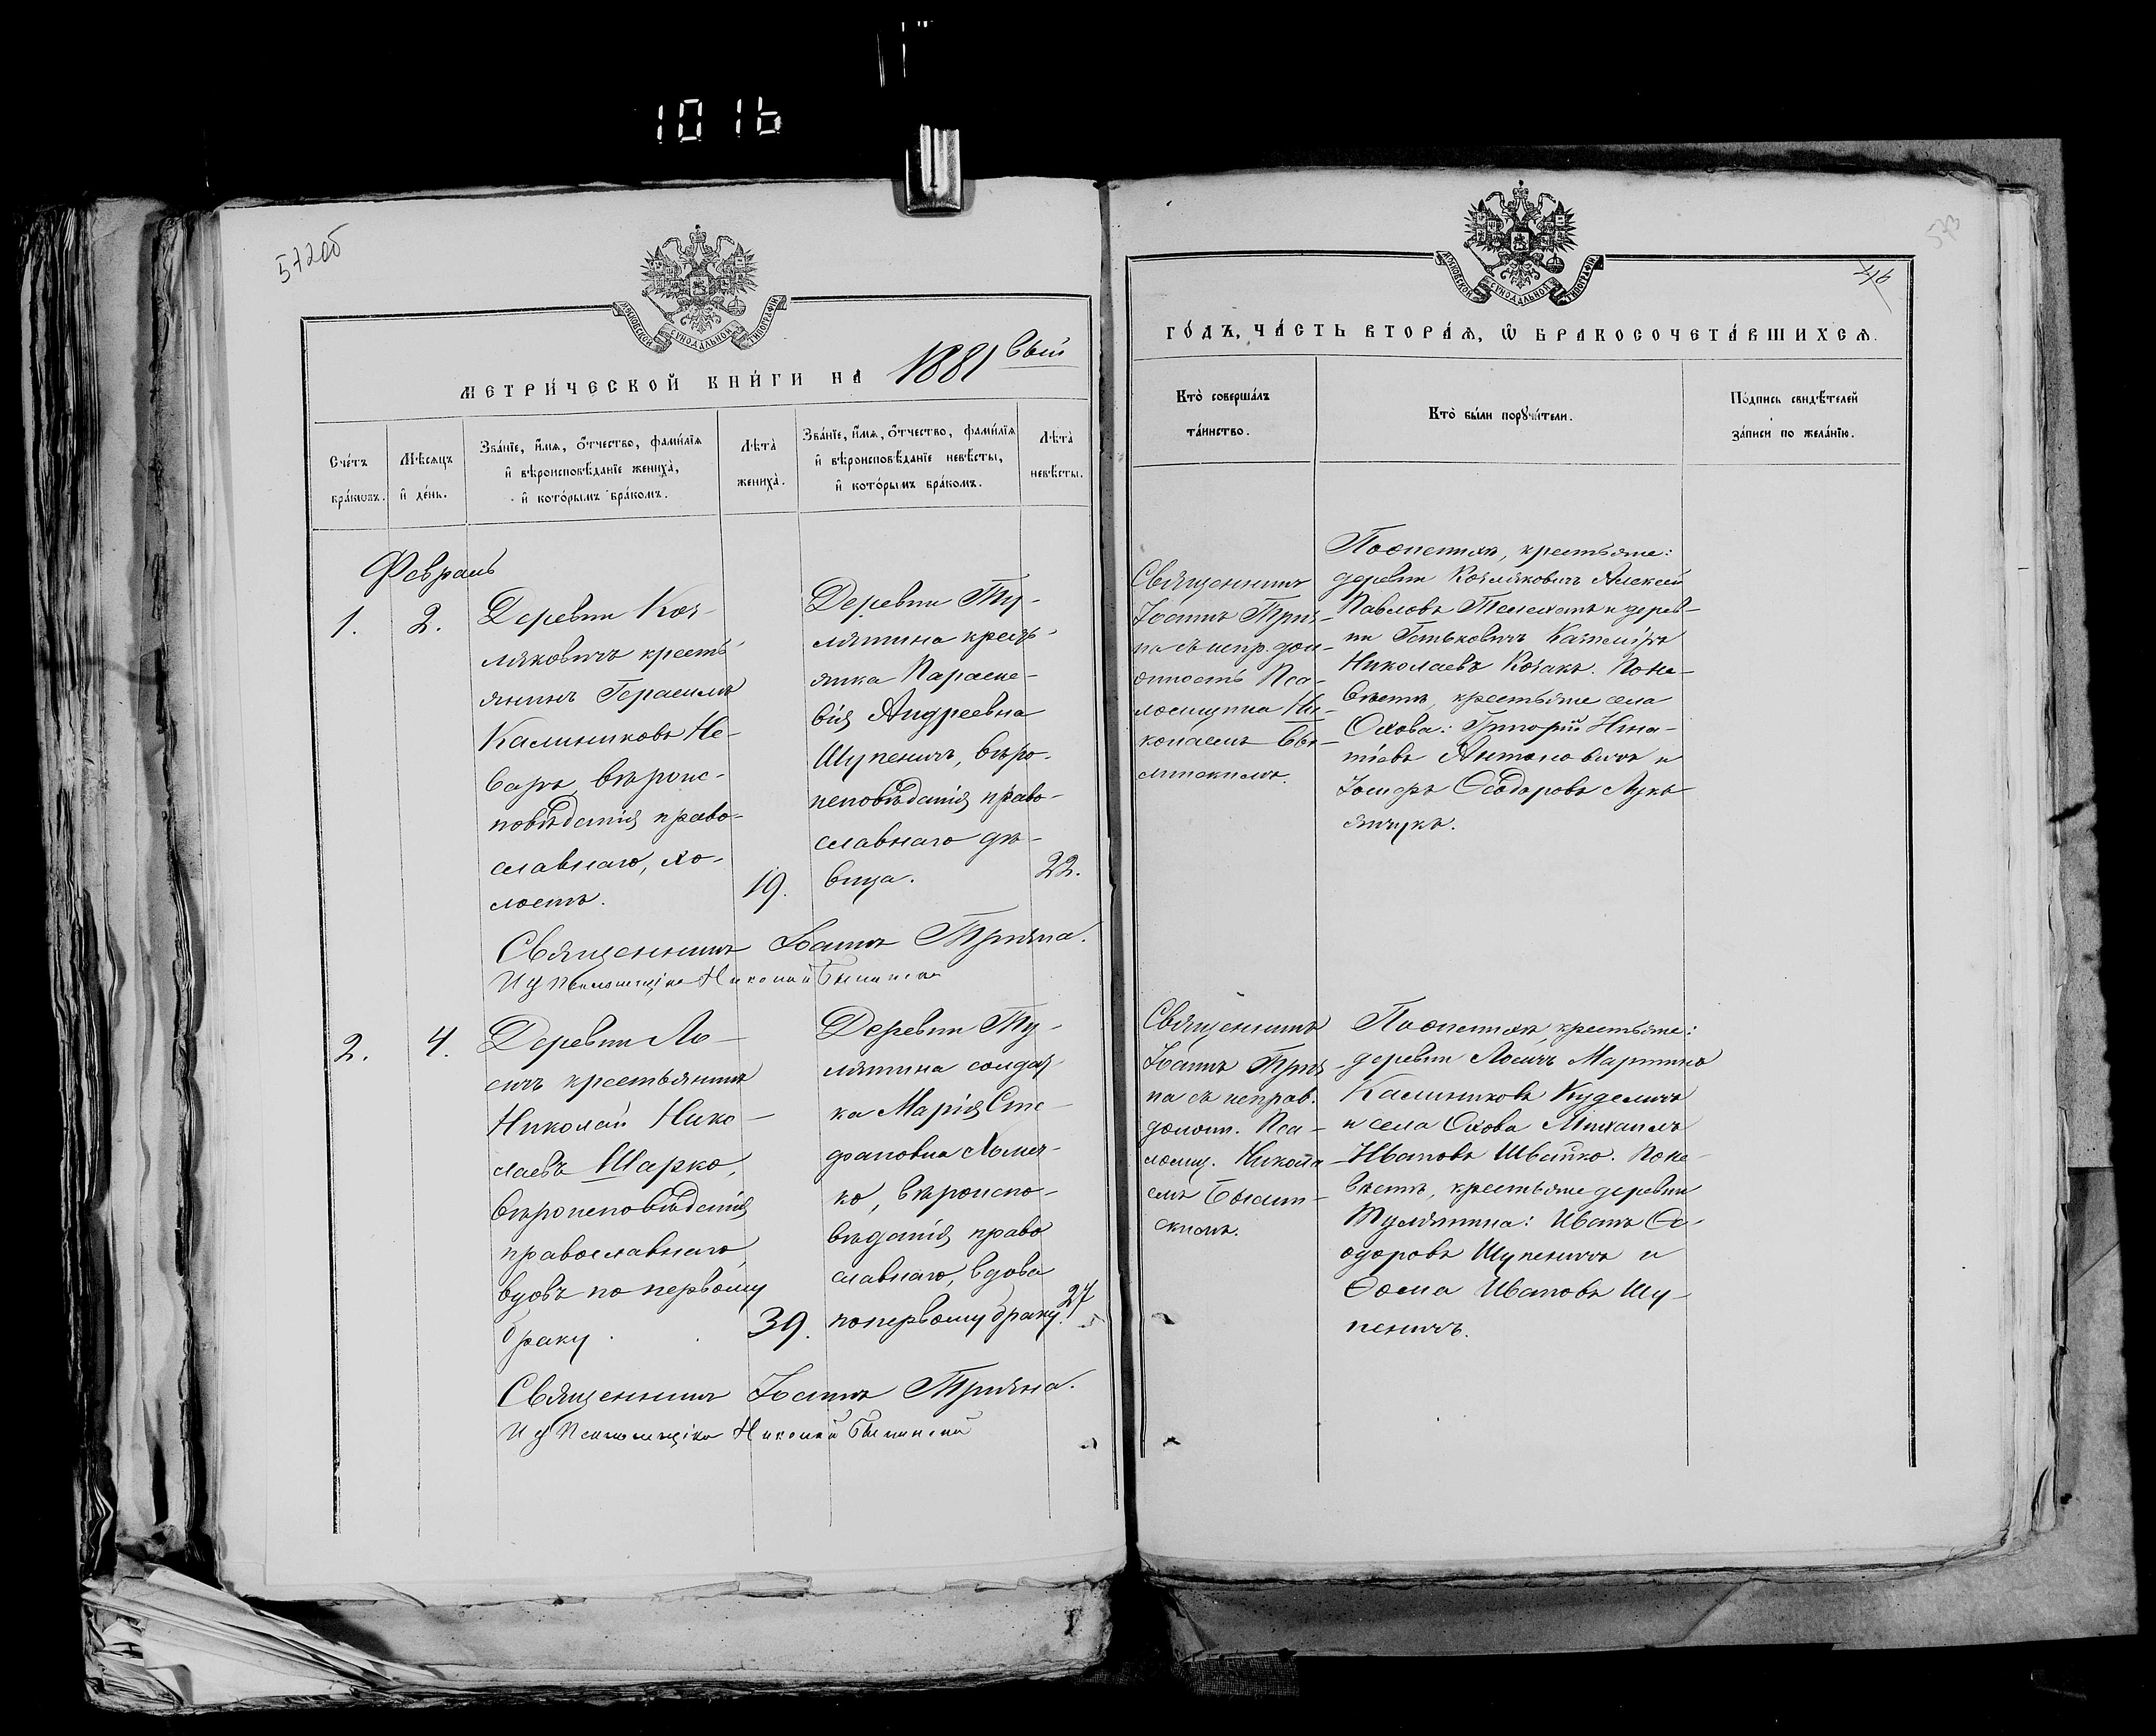 1016
572 об
573
46
МОСКОВСКОЙ СѴНОДАЛЬНОЙ ТИПОГРАФІИ
МЕТРИ́ЧЕСКОЙ КНИ́ГИ НА 1881 вый
Сче́тъ бра́ковъ.
Мѣ́сяцъ и де́нь.
Зва́нїе, и҆́мѧ, ѻ҆́тчество, фами́лїѧ
и҆ вѣроисповѣ́данїе жениха̀,
и҆ кото́рымъ бра́комъ.
Лѣта̀ жениха̀.
Зва́нїе, и҆́мѧ, ѻ҆́тчество, фами́лїѧ
и҆ вѣроисповѣ́данїе невѣ́сты,
и҆ кото́рымъ бра́комъ.
Лѣта̀ невѣ́сты.
Февраль
1.
2.
Деревни Коз-
ляковичъ кресть-
янинъ Герасимъ
Калиниковъ Не-
варъ, вѣроис-
повѣданія право-
славнаго, хо-
лостъ.
19.
Деревни Ту-
лятина кресть-
янка Параске-
вія Андреевна
Шупеничъ, вѣро-
исповѣданія право-
славнаго дѣ-
вица.
22.
Священникъ Іоаннъ Тризна.
И д Псаломщика Николай
2.
4.
Деревни Ло-
сичъ крестьянинъ
Николай Нико-
лаевъ Шарко,
вѣроисповѣданія
православнаго,
вдовъ по первому
браку
39.
Деревни Ту-
лятина солдат-
ка Марія Сте-
фановна
ко, вѣроиспо-
вѣданія право
славнаго, вдова
по первому браку.
27
Священникъ Іоаннъ Тризна.
И д Псаломщика Николай
МОСКОВСКОЙ СѴНОДАЛЬНОЙ ТИПОГРАФІИ
ГО́ДЪ, ЧА́СТЬ ВТОРА́Ѧ, Ѽ БРАКОСОЧЕТА́ВШИХСѦ.
Кто̀ соверша́лъ
та́инство.
Кто̀ бы́ли порꙋчи́тели.
По́дпись свидѣ́телей
за́писи по жела́нїю.
Священникъ
Іоаннъ Триз-
на съ испр. дол-
жность Пса-
ломщика Ни-
колаемъ
По женихѣ, крестьяне:
деревни Козляковичъ Алексѣй
Павловъ и дерев-
ни Гатьковичъ Казиміръ
Николаевъ Козакъ. По не-
вѣстѣ, крестьяне села
Охова: Григорій Игна-
тіевъ Антоновичъ и
Іосифъ Ѳеодоровъ Лукь
янчукъ.
Священникъ
Іоаннъ Триз
на съ исправ.
должн. Пса-
ломщ. Никола-
емъ
По женихѣ, крестьяне:
деревни Лосичъ Мартинъ
Калиниковъ Куделичъ
и села Охова Михаилъ
Ивановъ Швайко. По не-
вѣстѣ, крестьяне деревни
Тулятина: Иванъ Ѳе-
одоровъ Шупеничъ и
Ѳома Ивановъ Шу-
пеничъ.